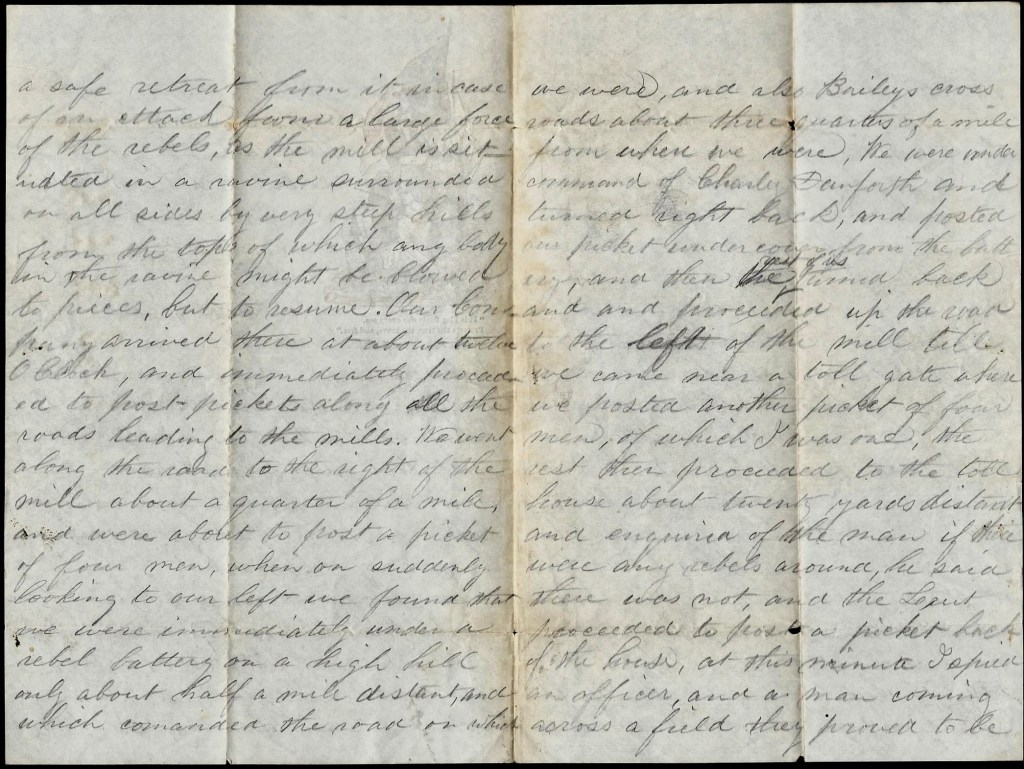 a safe retreat from it in case
of an attack from a large force
of the rebels, as the mill is sit-
uated in a ravine surrounded
on all sides by very steep hills
from the tops of which any body
in the ravine might be blowed
to pieces, but to resume. Our Com-
pany arrived there at about twelve
O Clock, and immediately proceed-
ed to post pickets along all the
roads leading to the mills. We went
along the road to the right of the
mill about a quarter of a mile,
and were about to post a picket
of four men, when on suddenly
looking to our left we found that
we were immediately under a
rebel battery on a high hill
only about half a mile distant, and
which comanded the road on which
we were, and also Baileys cross
roads about three quarters of a mile
from where we were, We were under
command of Charley Danforth and
turned right back, and posted
our picket under cover from the batt
ery, and then the rest of us turned back
and and proceeded up the road
to the left of the mill till
we came near a toll gate where
we posted another picket of four
men, of which I was one, the
rest then proceeded to the toll
house about twenty yards distant
and enquired of the man if there
were any rebels around, he said
there was not, and the Leiut
proceeded to post a picket back
of the house, at this minute I spied
an officer, and a man coming
across a field they proved to be